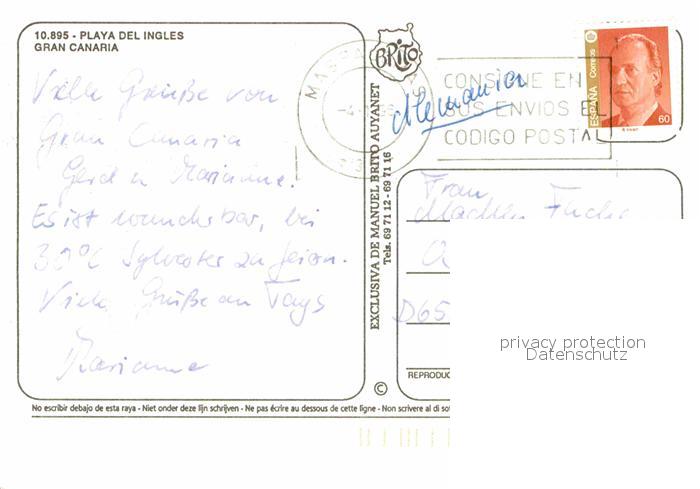 10.895 - PLAYA DEL INGLES
GRAN CANARIA
Viele Grüße von
Gran Canaria
Gerd u Marianne.
Es ist wunderbar, bei
30°C Sylvester zu feiern.
Viele Grüße an Tays
Marianne
BRITO
EXCLUSIVA DE MANUEL BRITO AUYANET
Tels. 69 71 12 - 69 71 16
©
CONSIGNE EN
SUS ENVIOS EL
CODIGO POSTAL
Alemania
ESPAÑA
Correos
60
Frau
D65
REPRODUC
privacy protection
Datenschutz
No escribir debajo de esta raya - Niet onder deze lijn schrijven - Ne pas écrire au dessous de cette ligne - Non scrivere al di sot